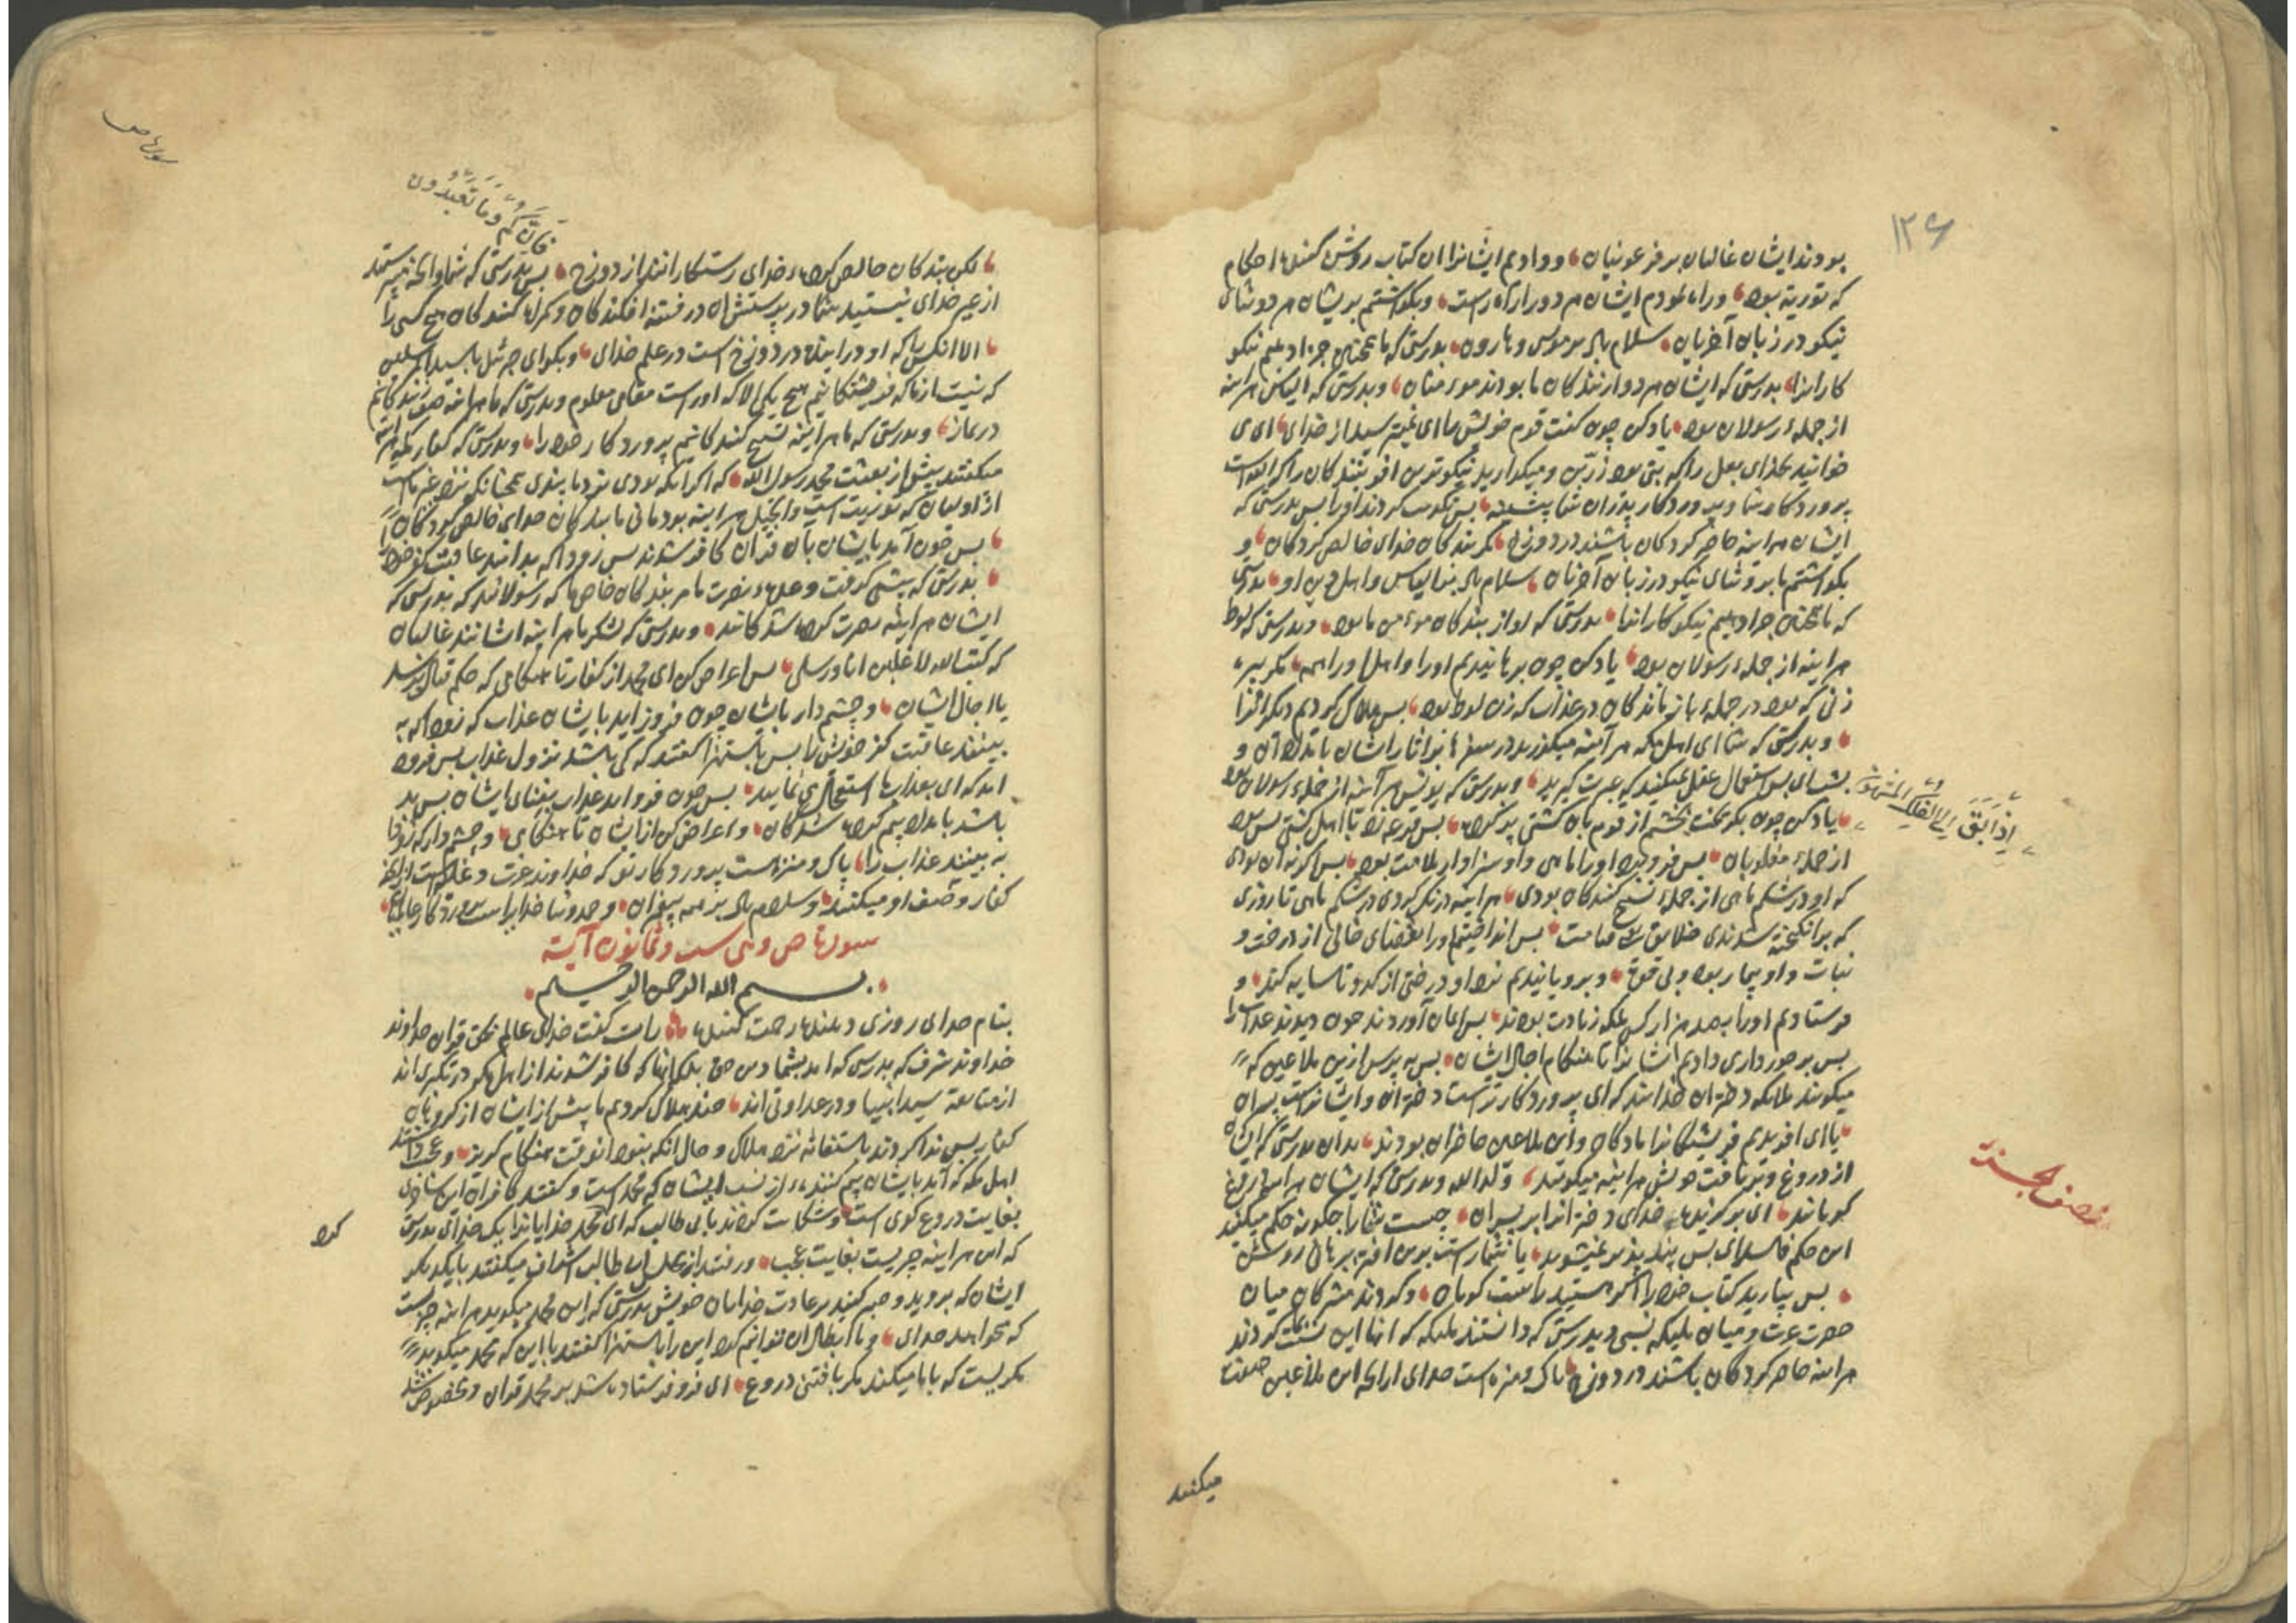 ۱۲۶
بودند ایشان غالبان بر فرعونیان و دادیم ایشانرا ان کتاب روشن کننده احکام
که توریة بود و راه نمودم ایشان هر دو را راه راست و بگذاشتم بریشان هر دو ثنای
نیکو در زبان آخریان سلام باد بر موسی و هارون بدرستی که ما همچنین جزا دهیم نیکو
کارانرا بدرستی که ایشان هر دو از بندکان ما بودند مومنان و بدرستی که الیاس هراینه
از جملهٔ رسولان بود یاد کن چون کفت قوم خویش را ای نمیترسید از خدای ای می
خوانید بخدای بعل را که بتی بود زرین و میکذارید نیکوترین افرینندکان را که الله است
پروردکار شما و پروردکار پدران شما پیشینه پس تکذیب کردند او را پس بدرستی که
ایشان هراینه حاضر کردکان باشند در دوزخ مکر بندکان خدای خالص کردکان و
بکذاشتیم ما برو ثنای نیکو در زبان آخریان سلام باد بر الیاس و اهل دین او بدرستی
که ما همچنین جزا دهیم نیکو کارانرا بدرستی که او از بندکان مومن ما بود و بدرستی که لوط
هراینه از جملهٔ رسولان بود یاد کن چون برهانیدیم او را و اهل او را همه مکر پیره
زنی که بود در جملهٔ باز ماندکان در عذاب که زن لوط بود پس هلاک کردیم دیکرانرا
و بدرستی که شما ای اهل مکه هر آینه میکذرید در سفرها بر اثار ایشان بامداد آن و
بشب ای پس استعمال عقل نمیکنید که عبرت کیرید و بدرستی که یونس هر آینه از جملهٔ رسولان بود
اِذْ اَبَقَ اِلَی الْفُلْکِ الْمَشْحُونِ
یاد کن چون بکریخت بخشم از قوم بان کشتی پر کرده پس قرعه زد با اهل کشتی پس بود
از جملهٔ مغلوبان پس فرو برد او را ماهی و او سزاوار ملامت بود پس اکر نه ان بودی
که او در شکم ماهی از جملهٔ تسبیح کنندکان بودی هراینه درنک کردی در شکم ماهی تا روزی
که برانکیخته شوندی خلایق قیامت پس انداختیم او را بفضای خالی از درخت و
نبات و او بیمار بود و بی قوت و برویانیدیم نزد او درختی از کدو تا سایه کند و
فرستادیم او را بصد هزار کس بلکه زیادت بودند پس ایمان آوردند چون دیدند عذاب را
پس برخورداری دادیم ایشانرا تا هنکام اجال ایشان پس بپرس ازین ملاعین که
میکویند ملایکه دختران خدا اند که ای پروردکار تراست دختران و ایشانراست پسران
یا ای افریدیم فریشتکانرا مادکان و این ملاعین حاضران بودند بدان بدرستی که ایشان
از دروغ و بربافت خویش هراینه میکویند ولد الله و بدرستی که ایشان هراینه دروغ
نصف الجزء
کویانند ای برکزیده خدای دخترانرا بر پسران چیست شما را چکونه حکم میکنید
این حکم فاسد ای پس پند پذیر نمیشوید یا شماراست برین افترا برهانی روشن
پس بیارید کتاب خود را اکر هستید راست کویان و کردند مشرکان میان
حضرت عزت و میان ملیکه نسبی و بدرستی که دانستند ملیکه که انها این نسبت کردند
هراینه حاضر کردکان باشند در دوزخ پاک و منزه است خدای از انچه این ملاعین صفت
میکنند
سورة ص
فَاِنَّکُمْ وَمَا تَعْبُدُونَ
لکن بندکان خالص کردهٔ خدای رستکارانند از دوزخ پس بدرستی که شما و انچه میپرستید
از غیر خدای نیستید شما در پرستش ان در فتنه افکندکان و کمراه کنندکان هیچ کسی را
الا انکس را که او در اینده در دوزخ است در علم خدای و بکو ای جبرئیل با سید المرسلین
که نیست از ما که فریشتکانیم هیچ یکی الا که اوراست مقامی معلوم و بدرستی که ما هراینه صف زنندکانیم
در نماز و بدرستی که ما هراینه تسبیح کنندکانیم پروردکار خود را و بدرستی که کفار مکه هراینه
میکفتند پیش از بعثت محمد رسول الله که اکر انکه بودی نزد ما پندی همچنانکه نزد غیر ماست
از اولیان که توریت است و انجیل هراینه بودمانی ما بندکان خدای خالص کردکان
پس چون آمد بایشان بان قران کافر شدند پس زود که بدانند عاقبت کفر خود را
بدرستی که پیشی کرفت وعدهٔ نصرت ما مر بندکان خاص ما که رسولانند که بدرستی که
ایشان هراینه نصرت کرده شدکانند و بدرستی که لشکر ما هراینه ایشانند غالبان
که کتب الله لاغلبن انا و رسلی پس اعراض کن ای محمد از کفار تا هنکامی که حکم قتال برسد
یا اجال ایشان و چشم دار بایشان چون فروز اید بایشان عذاب که زود که به
بینند عاقبت کفر خویش را پس باستهزا کفتند که کی باشد نزول عذاب پس فرود
امد که ای بعذاب ما استعجال می نمایید پس چون فرود اید عذاب بفنای ایشان پس بد
باشد بامداد بیم کرده شدکان و اعراض کن از ایشان تا هنکامی و چشم دار که زود
به بینند عذاب را پاک و منزه است پروردکار تو که خداوند عزت و غلبه است از انچه
کفار وصف او میکنند و سلام باد بر همه پیغمبران و حمد و ثنا خدایراست پروردکار عالمیان
سورة ص و هی ست و ثمانون آیة
بسم الله الرحمن الرحیم
بنام خدای روزی دهنده رحمت کننده راست کفت خدای عالم بحق قران خداوند
خداوند شرف که بدرستی که امد بشما دین حق بلکه انها که کافر شدند از اهل مکه در تکبری اند
از متابعت سید انبیا و در عداوتی اند چند هلاک کردیم ما پیش از ایشان از کروهان
کفار پس ندا کردند باستغاثه نزد هلاک و حال انکه نبود انوقت هنکام کریز و عجب داشتند
اهل مکه که آمد بایشان بیم کننده از نسب ایشان که محمد است و کفتند کافران این ساحری
بغایت دروغ کوی است و شکایت کردند بابی طالب که ای محمد خدایانرا یک خدای بدرستی
کرد
که این هراینه چیزیست بغایت عجب و رفتند از مجلس ابی طالب اشراف میکفتند با یکدیکر
ایشان که بروید و صبر کنید بر عبادت خدایان خویش بدرستی که این محمد میکوید هراینه چیزیست
که میخواهد خدای و ما ابطال ان نتوانیم کرد این را باستهزا کفتند یا این که محمد میکوید
مکریست که با ما میکند مکر بافتنی دروغ ای فرو فرستاده شد بر محمد قران و مخصوص شد